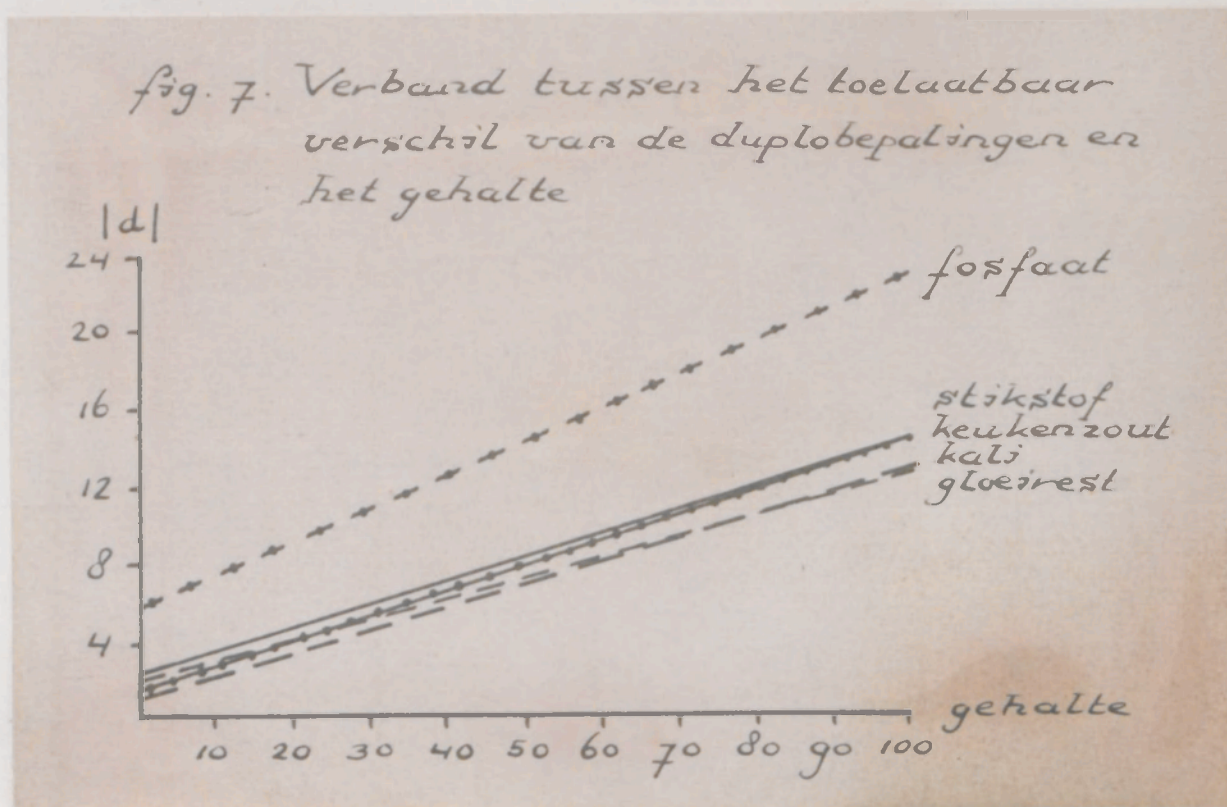 fig. 7. Verband tussen het toelaatbaar
verschil van de duplobepalingen en
het gehalte
|d|
24
20
16
12
8
4
fosfaat
stikstof
keukenzout
kali
gloeirest
gehalte
10 20 30 40 50 60 70 80 90 100